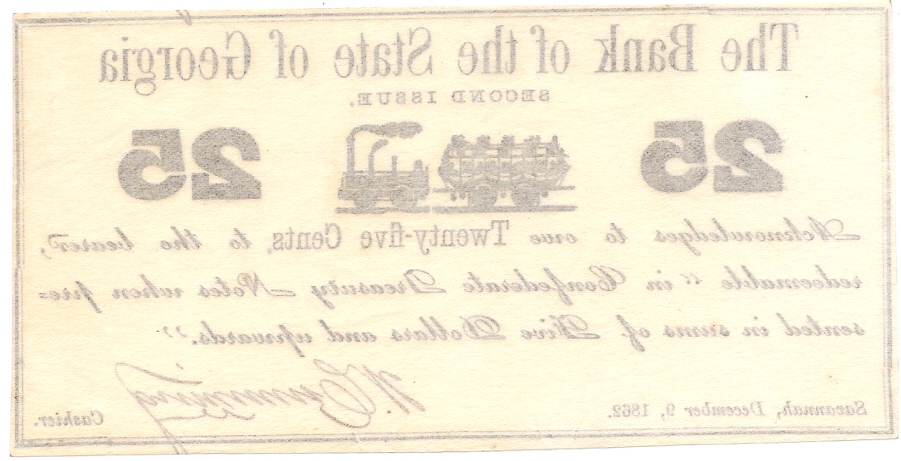 The Bank of the State of Georgia
SECOND ISSUE.
25 25
Acknowledges to owe Twenty-five Cents, to the bearer,
redeemable "in Confederate Treasury Notes when pre=
sented in sums of Five Dollars and upwards."
Savannah, December 9, 1862. W. Cumming Cashier.